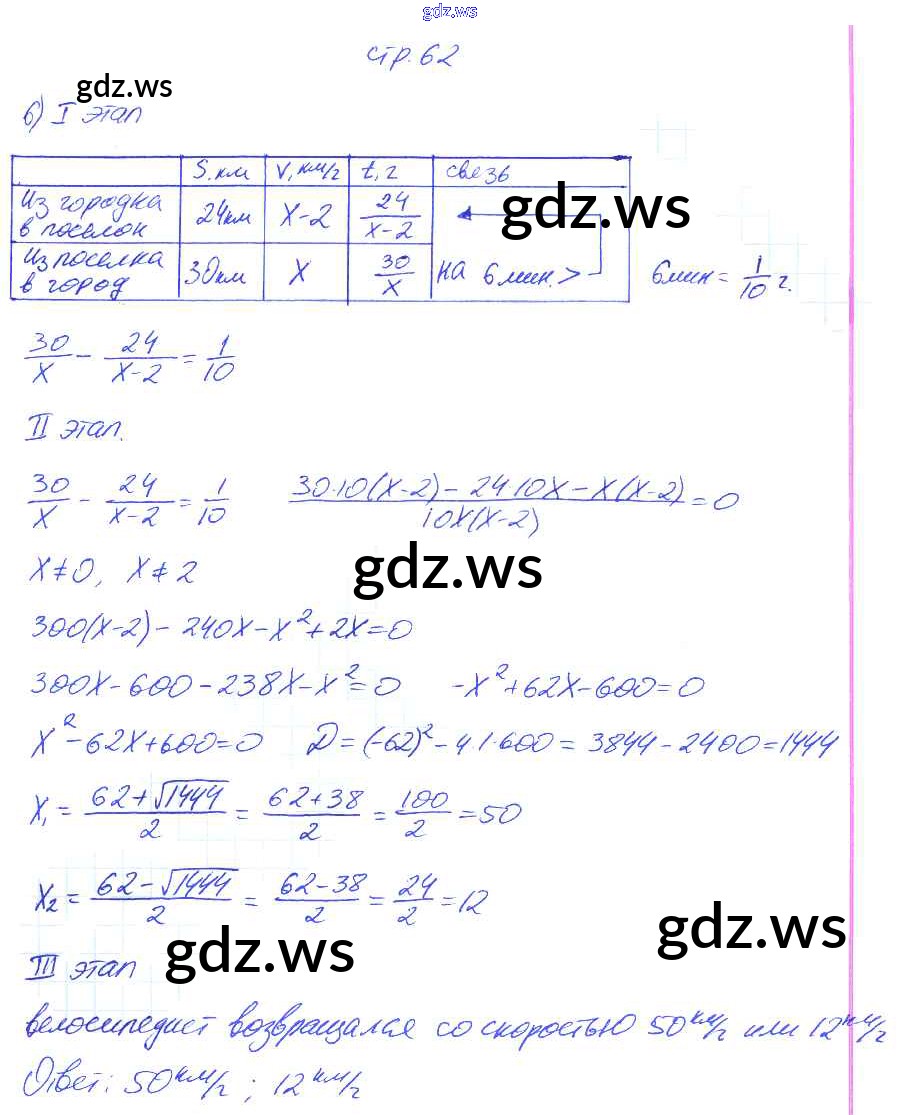 gdz.ws
стр. 62
gdz.ws
б) I этап
S, км V, км/г t, г свезь
Из городка в поселок 24км x-2 24/(x-2)
gdz.ws
Из поселка в город 30км x 30/x на 6 мин. >
6мин = 1/10 г.
30/x - 24/(x-2) = 1/10
II этап.
30/x - 24/(x-2) = 1/10 (30·10(x-2) - 24·10x - x(x-2))/(10x(x-2)) = 0
gdz.ws
x≠0, x≠2
300(x-2) - 240x - x²+2x=0
300x-600-238x-x²=0 -x²+62x-600=0
x²-62x+600=0 D=(-62)²-4·1·600=3844-2400=1444
x₁ = (62+√1444)/2 = (62+38)/2 = 100/2 = 50
x₂ = (62-√1444)/2 = (62-38)/2 = 24/2 = 12
gdz.ws
gdz.ws
III этап
велосипедист возвращался со скоростью 50км/г или 12км/г
Ответ: 50км/г; 12км/г